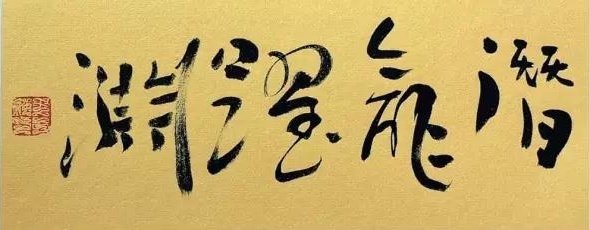 潛龍躍淵